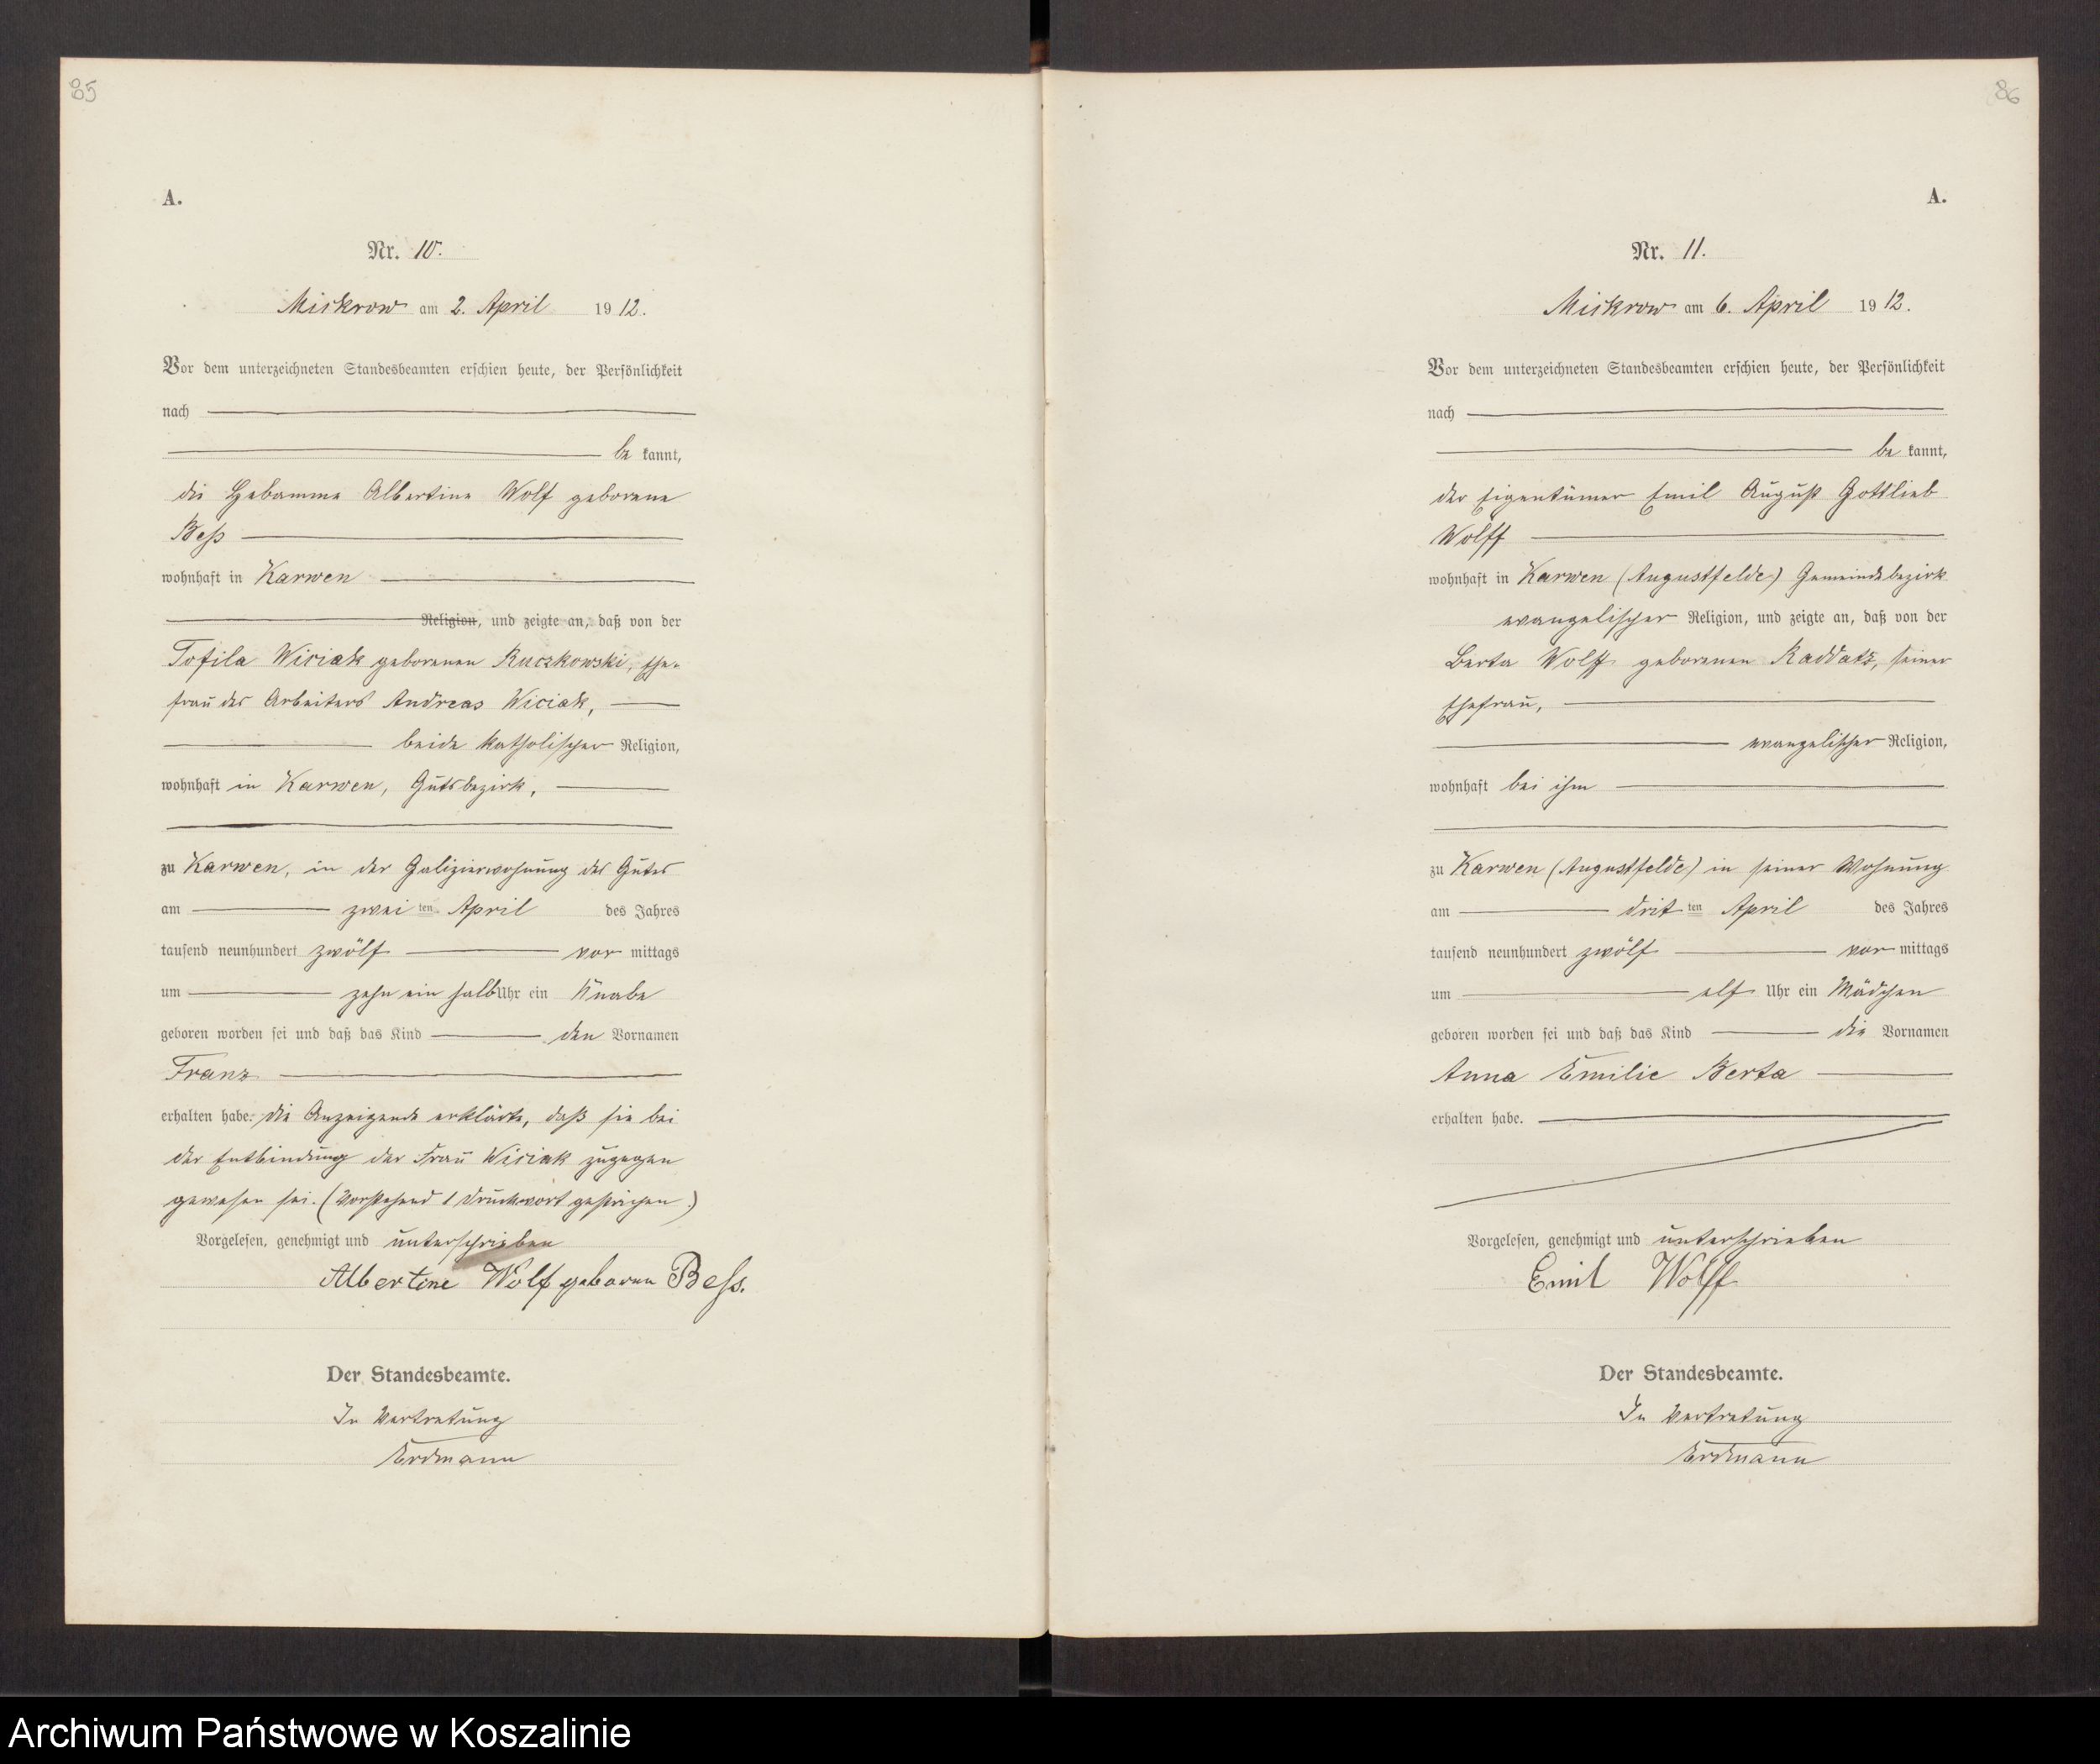 85
A.
Nr. 10.
Miskrow am 2. April 1912.
Vor dem unterzeichneten Standesbeamten erschien heute, der Persönlichkeit
nach
be kannt,
die Hebamme Albertine Wolf geborene
Bess
wohnhaft in Karwen
Religion, und zeigte an, daß von der
Tofila Wiciak geborenen Ruczkowski, Ehe-
frau des Arbeiters Andreas Wiciak,
beide katholischer Religion,
wohnhaft in Karwen, Gutsbezirk,
zu Karwen, in der Galizierwohnung des Gutes
am zwei ten April des Jahres
tausend neunhundert zwölf vor mittags
um zehn ein halb Uhr ein Knabe
geboren worden sei und daß das Kind den Vornamen
Franz
erhalten habe. Die Anzeigende erklärte, daß sie bei
der Entbindung der Frau Wiciak zugegen
gewesen sei. (Vorstehend 1 Druckwort gestrichen.)
Vorgelesen, genehmigt und unterschrieben
Albertine Wolf geboren Bess.
Der Standesbeamte.
In Vertretung
Erdmann
86
A.
Nr. 11.
Miskrow am 6. April 1912.
Vor dem unterzeichneten Standesbeamten erschien heute, der Persönlichkeit
nach
be kannt,
der Eigentümer Emil August Gottlieb
Wolff
wohnhaft in Karwen (Augustfelde) Gemeindebezirk
evangelischer Religion, und zeigte an, daß von der
Berta Wolff geborenen Raddatz, seiner
Ehefrau,
evangelischer Religion,
wohnhaft bei ihm
zu Karwen (Augustfelde) in seiner Wohnung
am drit ten April des Jahres
tausend neunhundert zwölf vor mittags
um elf Uhr ein Mädchen
geboren worden sei und daß das Kind die Vornamen
Anna Emilie Berta
erhalten habe.
Vorgelesen, genehmigt und unterschrieben
Emil Wolff
Der Standesbeamte.
In Vertretung
Erdmann
Archiwum Państwowe w Koszalinie